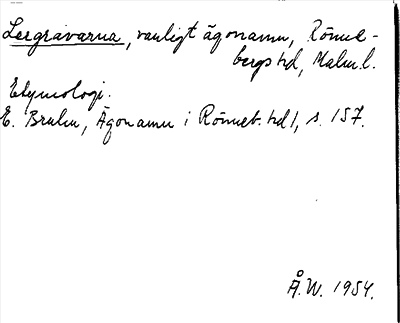 Lergravarna, vanligt ägonamn, Rönne-
bergs hd, Malm.l.
Etymologi.
E. Bruhn, Ägonamn i Rönneb. hd 1, s. 157.
Å.W. 1954.